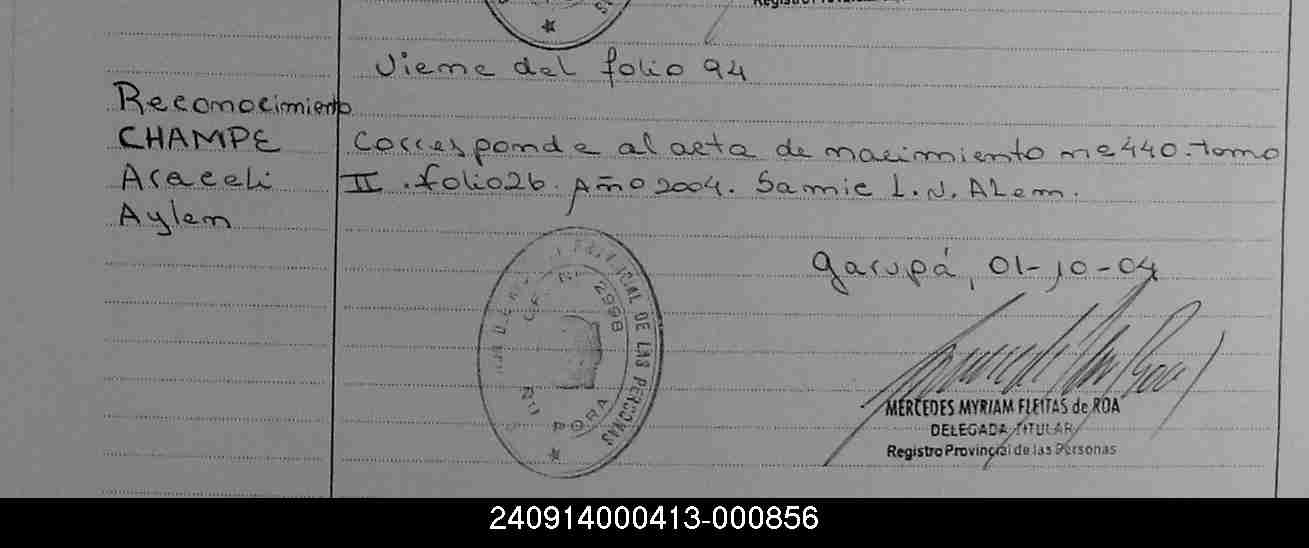 Viene del folio 94
Reconocimiento
CHAMPE
Araceli
Aylen
Corresponde al acta de nacimiento nº 440. tomo
II. folio 26. Año 2004. Samic L.N. ALem.
Garupá, 01-10-04
PROVINCIAL DE LAS PERSONAS
OF. Nº 2998
ÑU PORA
MERCEDES MYRIAM FLEITAS de ROA
DELEGADA TITULAR
Registro Provincial de las Personas
240914000413-000856